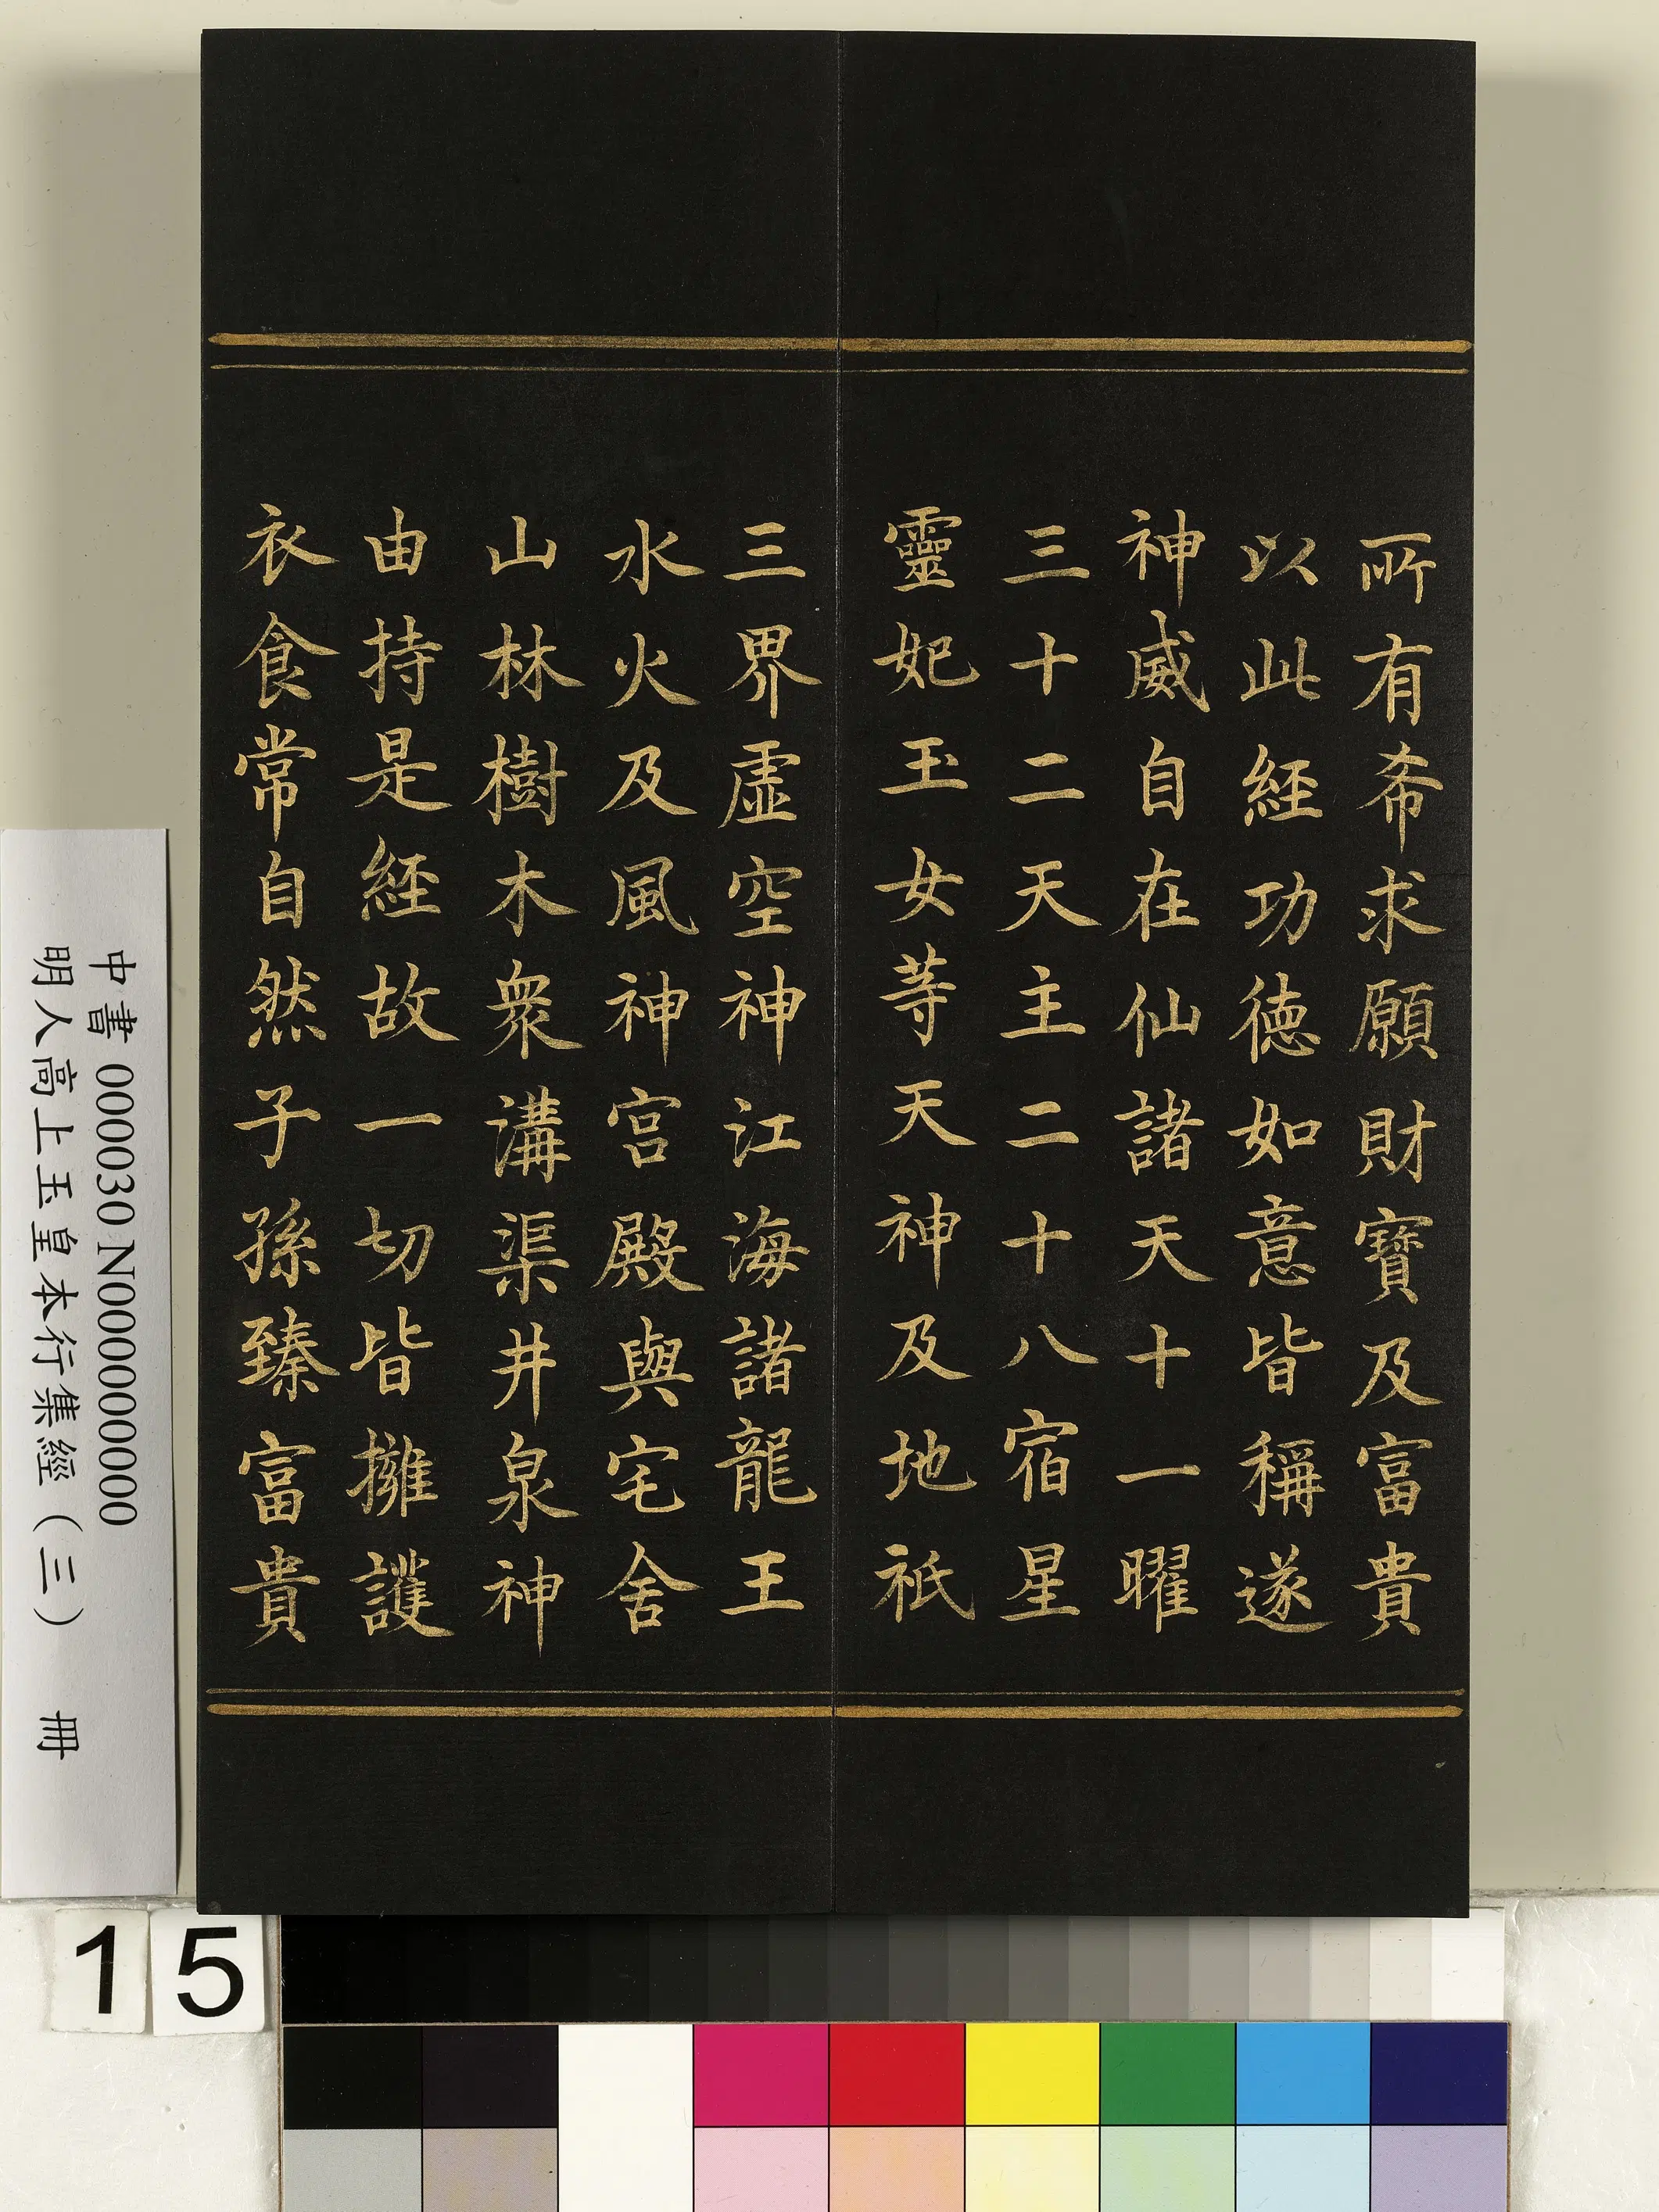 所有希求願財寶及富貴
以此經功德如意皆稱遂
神威自在仙諸天十一曜
三十二天主二十八宿星
靈妃玉女等天神及地祇
三界虛空神江海諸龍王
水火及風神宮殿與宅舍
山林樹木衆溝渠井泉神
由持是經故一切皆擁護
衣食常自然子孫臻富貴
中書 000030 N000000000
明人高上玉皇本行集經（三） 冊
15